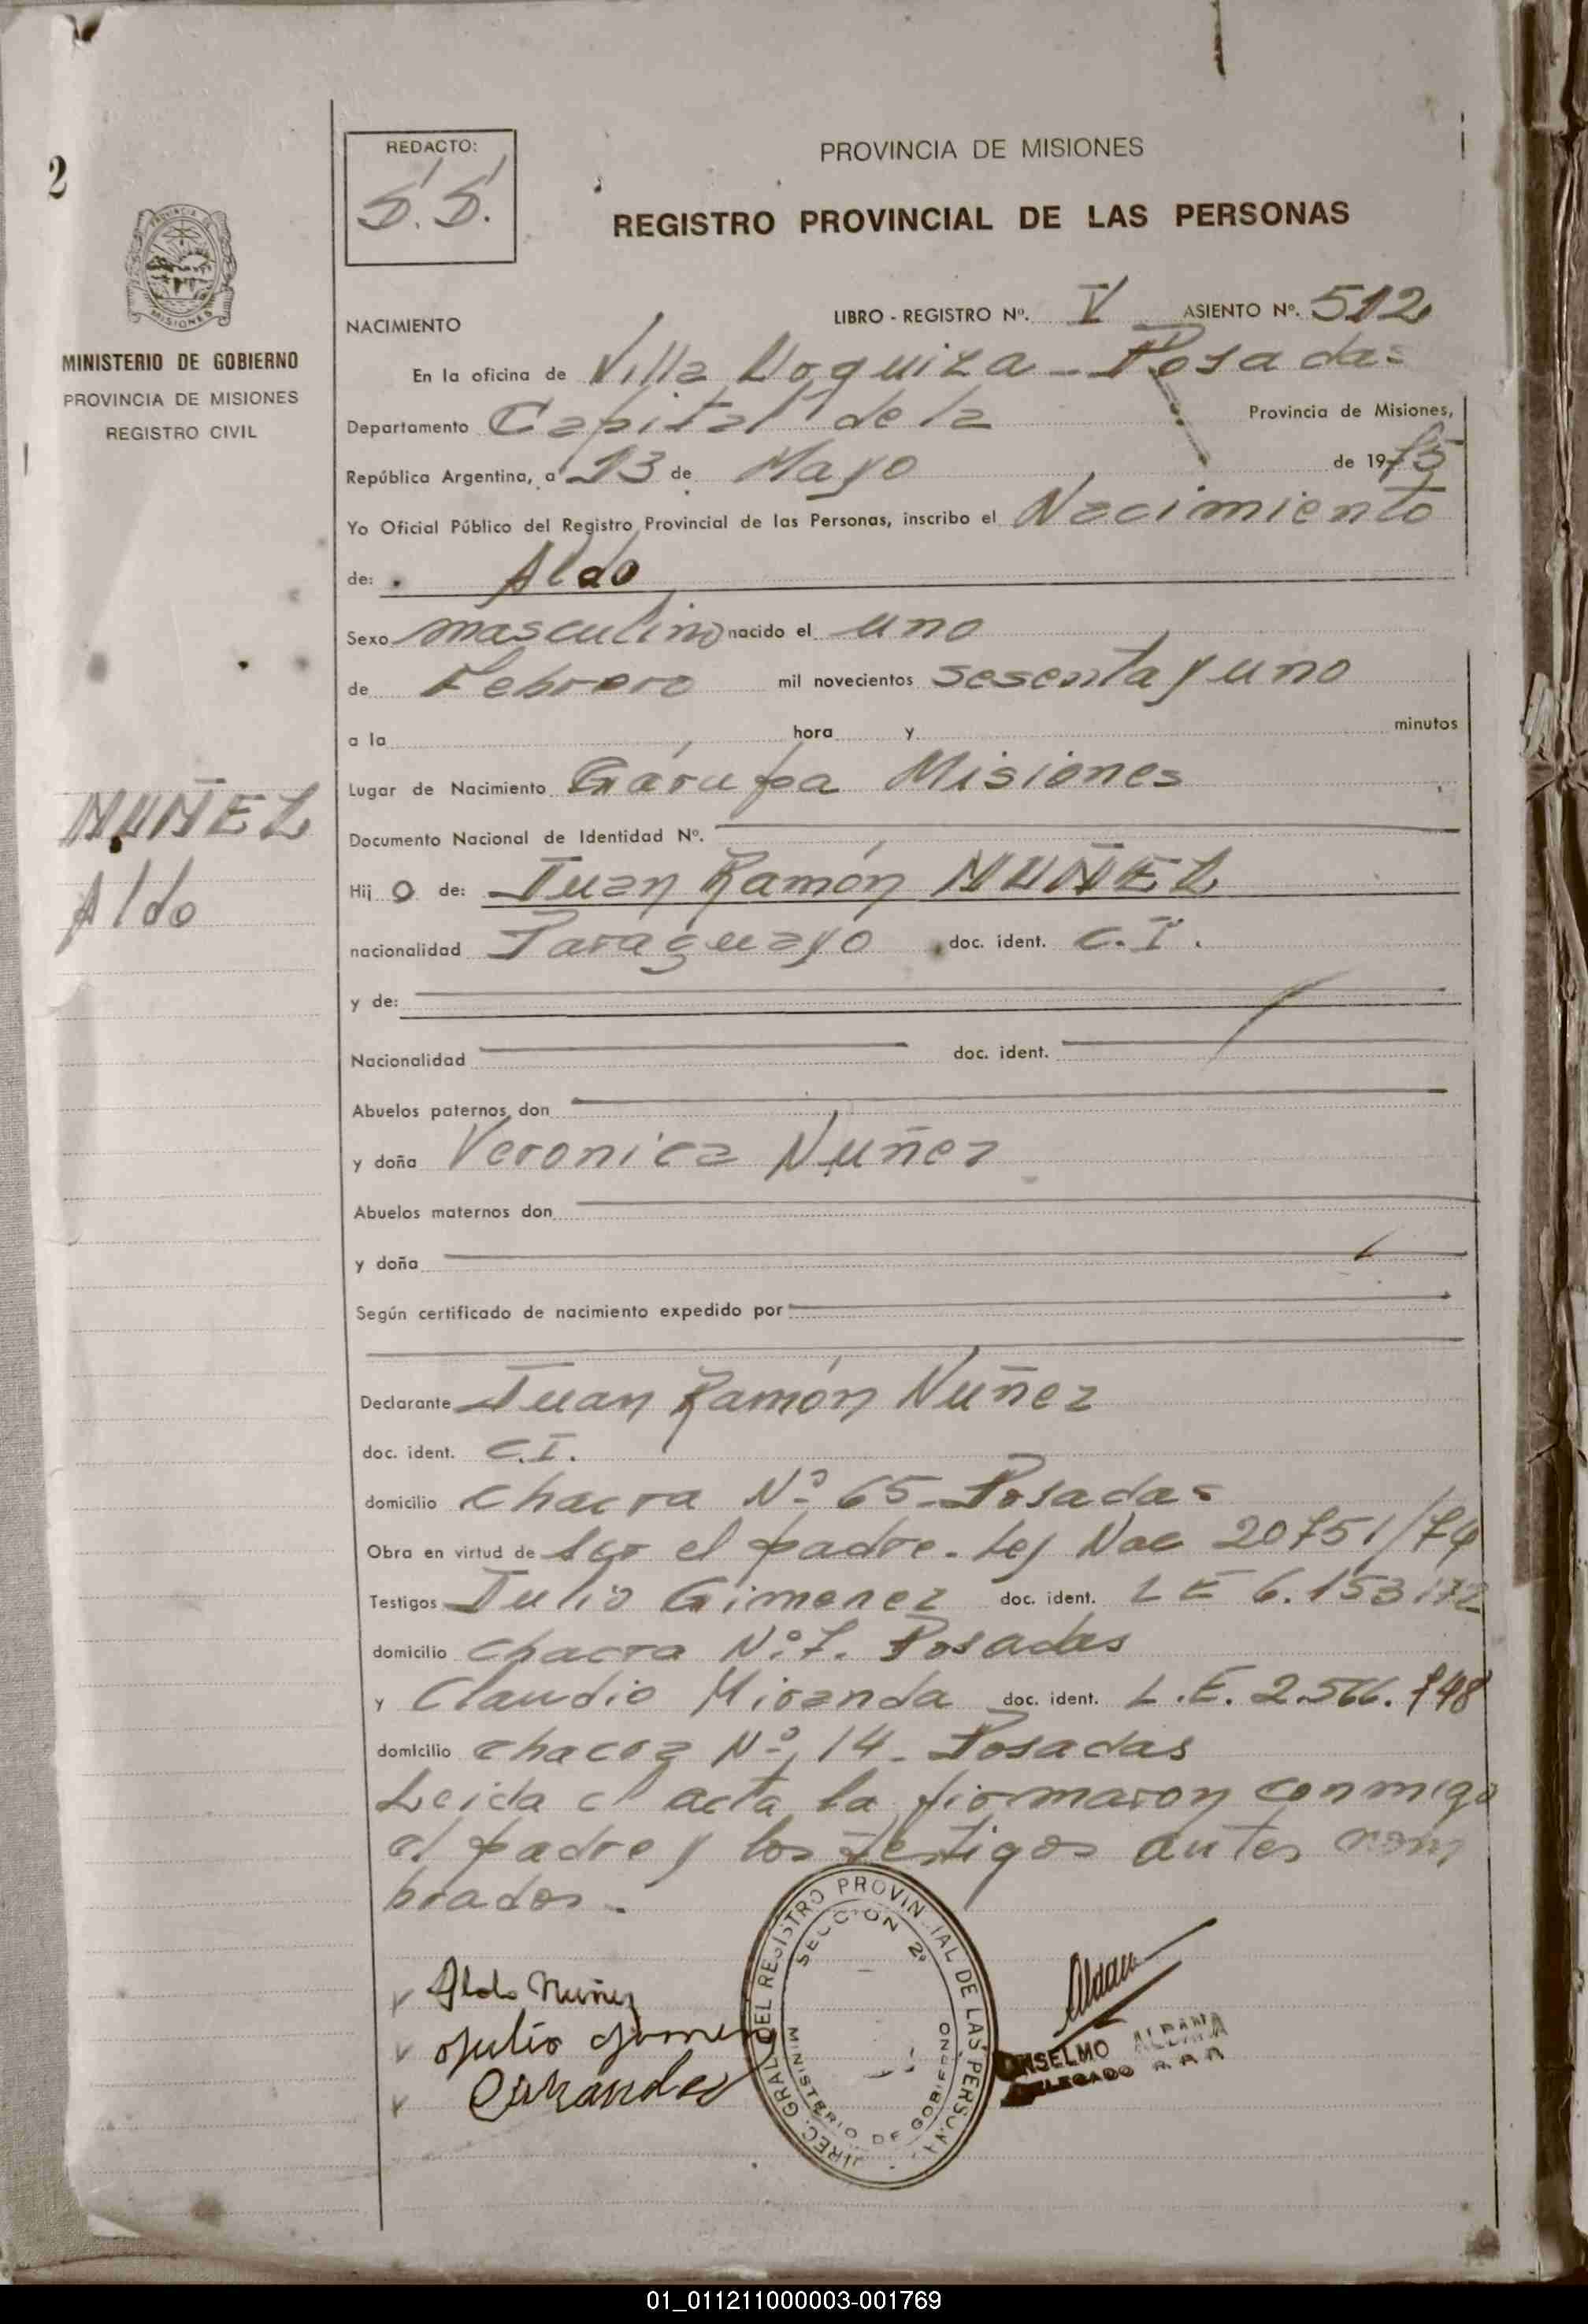 2
REDACTO:
S.S.
PROVINCIA DE MISIONES
REGISTRO PROVINCIAL DE LAS PERSONAS
MISIONES
MINISTERIO DE GOBIERNO
PROVINCIA DE MISIONES
REGISTRO CIVIL
NACIMIENTO LIBRO - REGISTRO Nº. V ASIENTO Nº. 512
En la oficina de Villa Urquiza - Posadas
Departamento Capital de la Provincia de Misiones,
República Argentina, a 13 de Mayo de 1975
Yo Oficial Público del Registro Provincial de las Personas, inscribo el Nacimiento
de: Aldo
Sexo masculino nacido el uno
de Febrero mil novecientos sesenta y uno
a la hora y minutos
Lugar de Nacimiento Garupa Misiones
Documento Nacional de Identidad Nº.
NUÑEZ
Aldo
Hij o de: Juan Ramón NUÑEZ
nacionalidad Paraguayo doc. ident. C.I.
y de:
Nacionalidad doc. ident.
Abuelos paternos, don
y doña Veronica Nuñez
Abuelos maternos don
y doña
Según certificado de nacimiento expedido por
Declarante Juan Ramón Nuñez
doc. ident. C.I.
domicilio Chacra Nº 65 - Posadas
Obra en virtud de ser el padre. Ley Nac 20751/74
Testigos Julio Gimenez doc. ident. L E 6.153.172
domicilio Chacra Nº 7. Posadas
y Claudio Miranda doc. ident. L.E. 2.566.748
domicilio chacra Nº 14 - Posadas
Leida el acta la firmaron conmigo
el padre y los testigos antes nom
brados.-
Aldo Nuñez
Julio Gimenez
DIREC. GRAL. DEL REGISTRO PROVINCIAL DE LAS PERSONAS
SECCION 2º
MINISTERIO DE GOBIERNO
ANSELMO ALDANA
DELEGADO
01_011211000003-001769